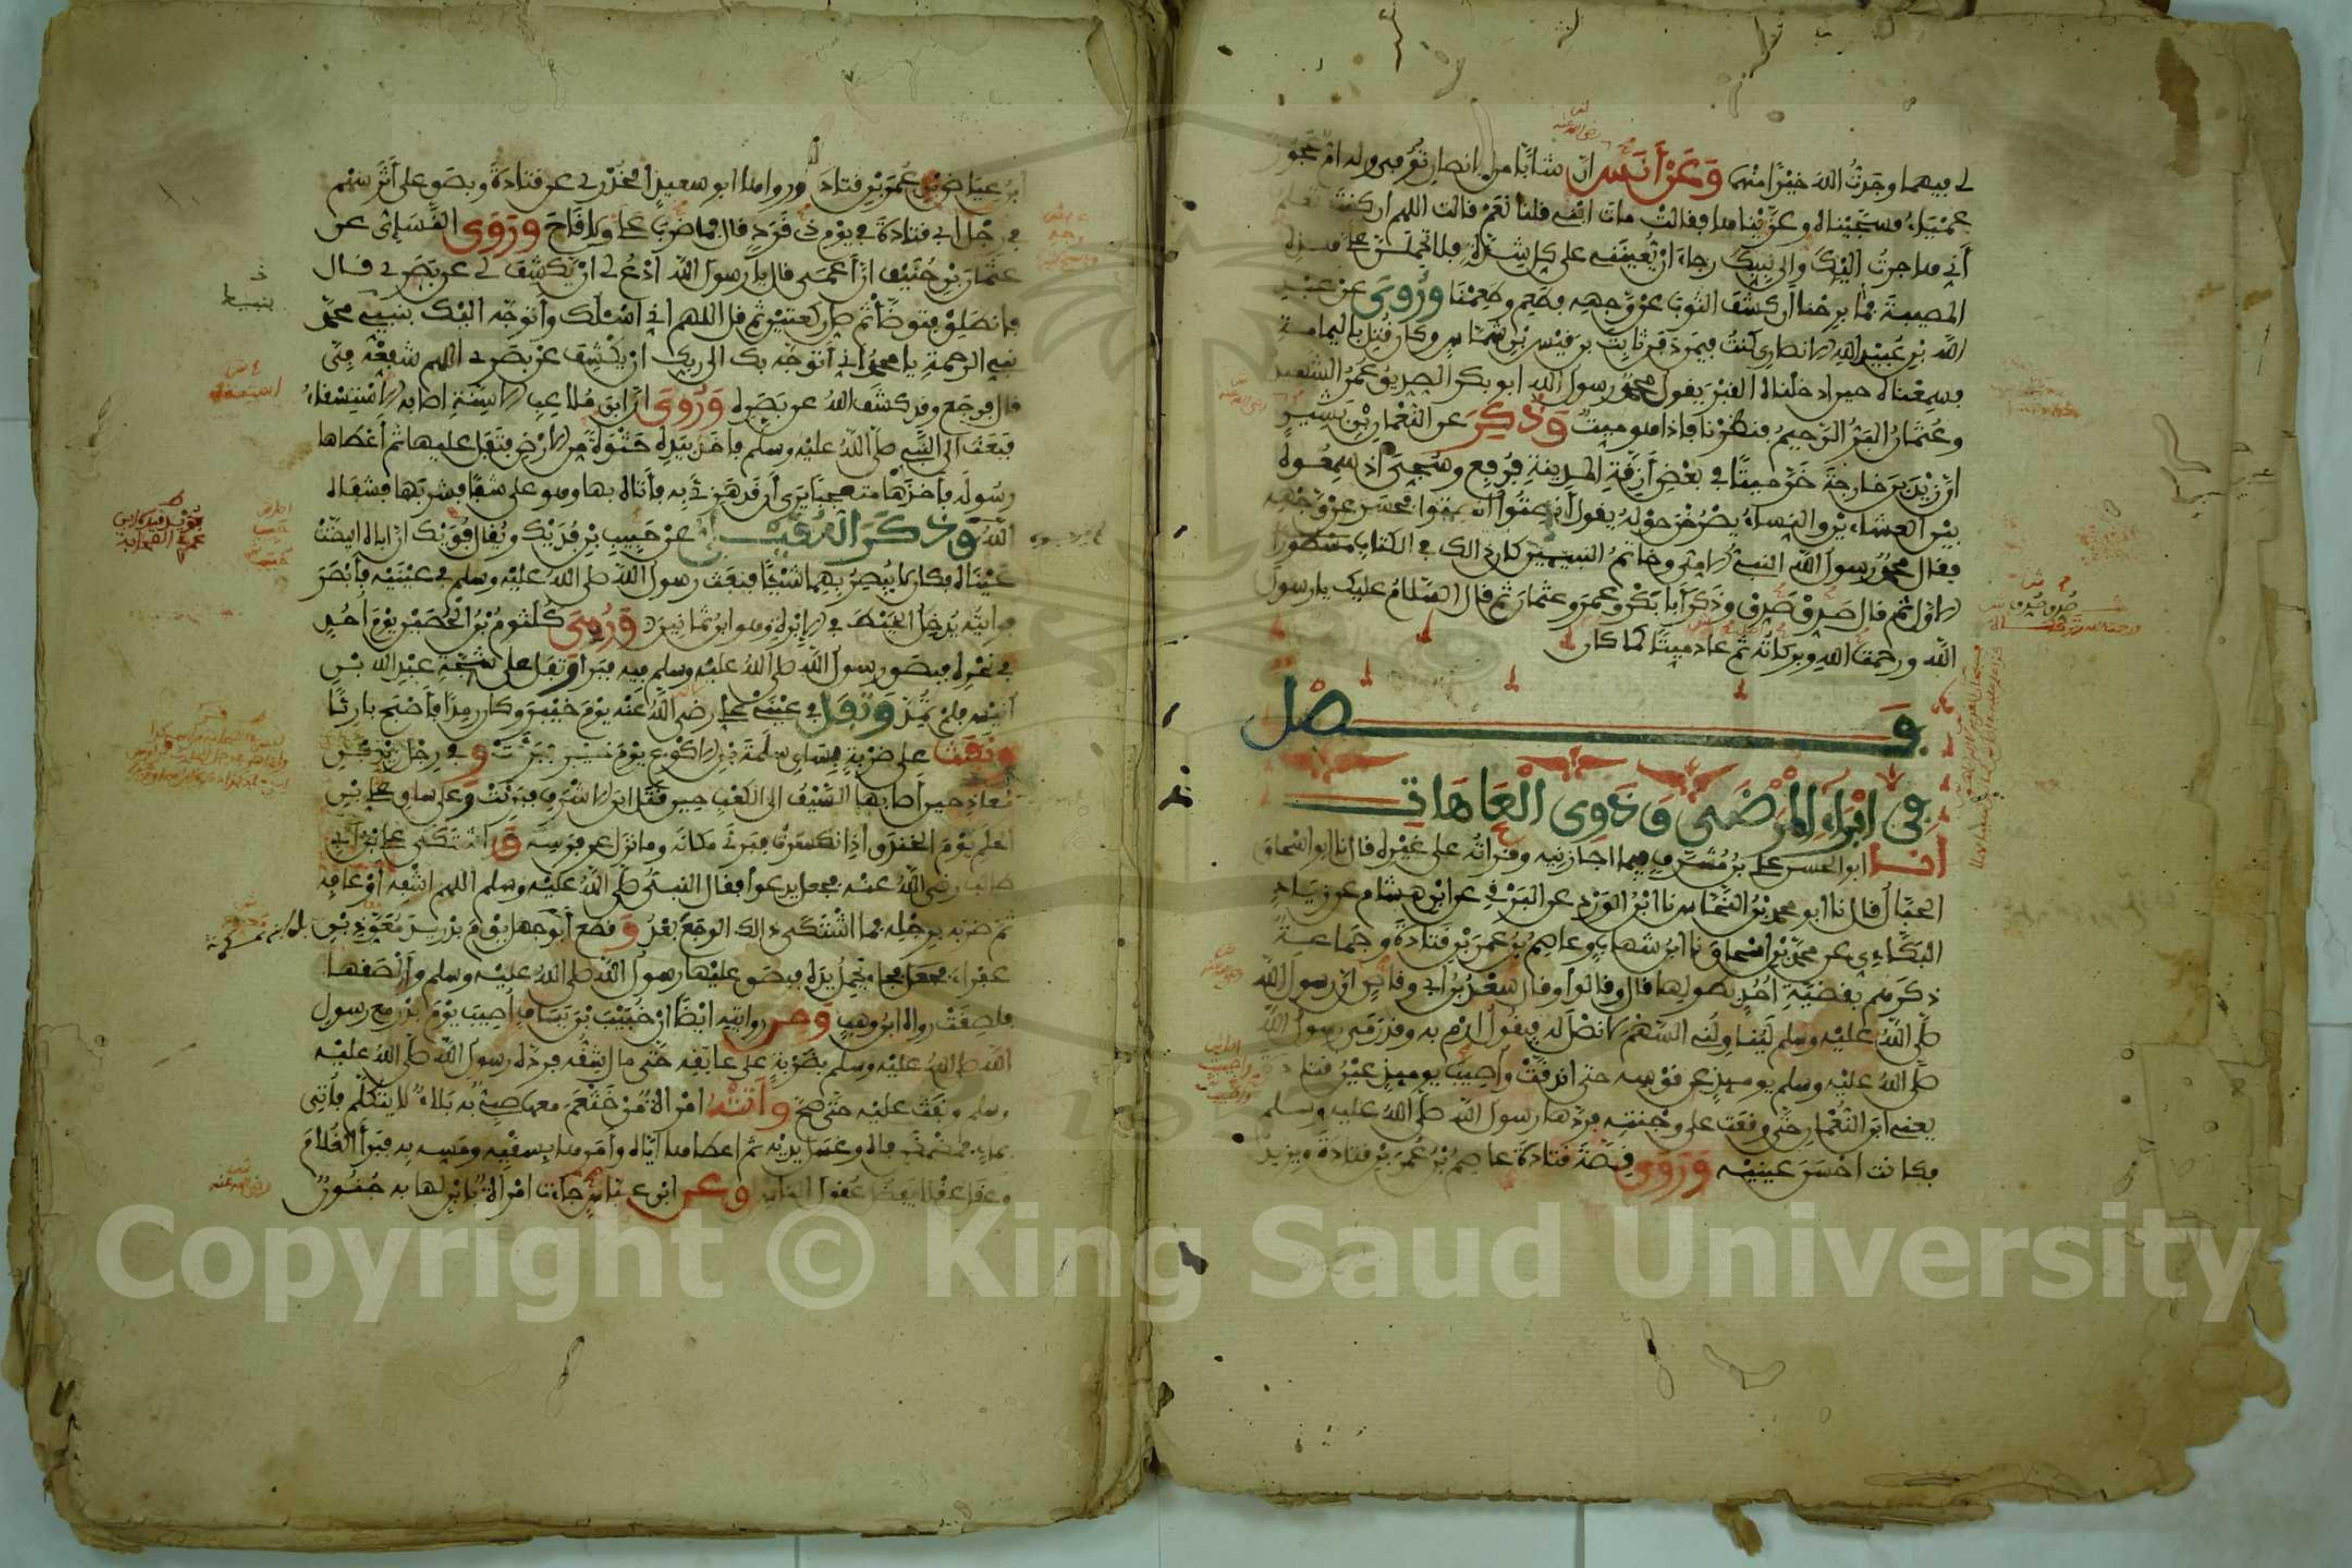 لي فيهما وجدت الله خيرا منهما وعن أنس ان شابا من الانصار توفي وله ام عجوز
عمياء فسجيناه وعزيناها فقالت مات ابني قلنا نعم قالت اللهم ان كنت تعلم
أني هاجرت اليك والى نبيك رجاء ان تعينني على كل شدة فلا تحملن علي هذه
المصيبة فما برحنا أن كشف الثوب عن وجهه فطعم وطعمنا وروي عن عبد
الله بن عبيد الله الانصاري كنت فيمن دفن ثابت بن قيس بن شماس وكان قتل باليمامة
فسمعناه حين ادخلناه القبر يقول محمد رسول الله ابو بكر الصديق عمر الشهيد
وعثمان البر الرحيم فنظرنا فاذا هو ميت وذكر عن النعمان بن بشير
ان زيد بن خارجة خر ميتا في بعض أزقة المدينة فرفع وسجي اذ سمعوه
بين العشاءين والنساء يصرخن حوله يقول أنصتوا أنصتوا فحسر عن وجهه
فقال محمد رسول الله النبي الامي وخاتم النبيين كان ذلك في الكتاب مسطورا
الاول ثم قال صدق صدق وذكر أبا بكر وعمر وعثمان ثم قال السلام عليك يا رسول
الله ورحمت الله وبركاته ثم عاد ميتا كما كان
فصل
في ابراء المرضى وذوي العاهات
انا ابو الحسن علي بن مشرف فيما اجازنيه وقراته على غيره قال نا ابو اسحاق
الحبال قال نا ابو محمد بن النحاس نا ابن الورد عن البرقي عن ابن هشام عن زياد
البكاءي عن محمد بن اسحاق نا ابن شهاب وعاصم بن عمر بن قتادة وجماعة
ذكرهم بقضية احد بطولها قال وقالوا وقال سعد بن ابي وقاص ان رسول الله
صلى الله عليه وسلم ليناولني السهم لا نصل له فيقول ارم به وقد رمى رسول الله
صلى الله عليه وسلم يومئذ عن قوسه حتى اندقت وأصيب يومئذ عين قتادة
يعني ابن النعمان حتى وقعت على وجنته فردها رسول الله صلى الله عليه وسلم
فكانت احسن عينيه وروى قصة قتادة عاصم بن عمر بن قتادة ويزيد
ابن عياض بن عمر بن قتادة ورواها ابو سعيد الخدري عن قتادة وبصق على أثر سهم
في وجه أبي قتادة في يوم ذي قرد قال فما ضرب علي ولا قاح وروى النسائي عن
عثمان بن حنيف ان أعمى قال يا رسول الله ادع لي ان يكشف لي عن بصري قال
فانطلق فتوضأ ثم صل ركعتين ثم قل اللهم اني اسئلك وأتوجه اليك بنبيي محمد
نبي الرحمة يا محمد اني أتوجه بك الى ربك ان يكشف عن بصري اللهم شفعه في
قال فرجع وقد كشف الله عن بصره وروي ان ابن ملاعب الاسنة اصابه الاستسقاء
فبعث الى النبي صلى الله عليه وسلم فاخذ بيده حثوة من الارض فتفل عليها ثم أعطاها
رسوله فاخذها متعجبا يرى أن قد هزئ به فأتاه بها وهو على شفا فشربها فشفاه
الله وذكر العقيلي عن حبيب بن فديك ويقال فويك ان اباه ابيضت
عيناه فكان لا يبصر بهما شيئا فنفث رسول الله صلى الله عليه وسلم في عينيه فأبصر
فرايته يدخل الخيط في الابرة وهو ابن ثمانين ورمي كلثوم بن الحصين يوم احد
في نحره فبصق رسول الله صلى الله عليه وسلم فيه فبرأ وتفل على شجة عبد الله بن
أنيس فلم تمد وتفل في عيني علي رضي الله عنه يوم خيبر وكان رمدا فأصبح بارئا
ونفث على ضربة بساق سلمة بن الاكوع يوم خيبر فبرئت وفي رجل زيد بن
معاذ حين أصابها السيف الى الكعب حين قتل ابن الاشرف فبرئت وعلى ساق علي بن
الحكم يوم الخندق اذ انكسرت فبرئ مكانه وما نزل عن فرسه واشتكى علي بن أبي
طالب رضي الله عنه فجعل يدعو فقال النبي صلى الله عليه وسلم اللهم اشفه أو عافه
ثم ضربه برجله فما اشتكى ذالك الوجع بعد وقطع أبو جهل يوم بدر يد معوذ بن
عفراء فجاء يحمل يده فبصق عليها رسول الله صلى الله عليه وسلم وألصقها
فلصقت رواه ابن وهب ومن روايته ايضا ان خبيب بن يساف أصيب يوم بدر مع رسول
الله صلى الله عليه وسلم بضربة على عاتقه حتى مال شقه فرده رسول الله صلى الله عليه
وسلم ونفث عليه حتى صح وأتته امراة من خثعم معها صبي به بلاء لا يتكلم فأتي
بماء فمضمض فاه وغسل يديه ثم اعطاها اياه وأمرها بسقيه ومسه به فبرأ الغلام
وعقل عقلا يفضل عقول الناس وعن ابن عباس جاءت امراة بابن لها به جنون
Copyright © King Saud University